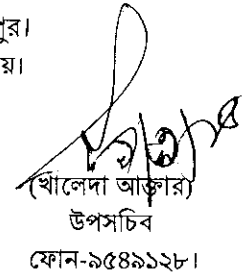 পুর।
য়।
(খালেদা আক্তার)
উপসচিব
ফোন-৯৫৪৯১২৮।